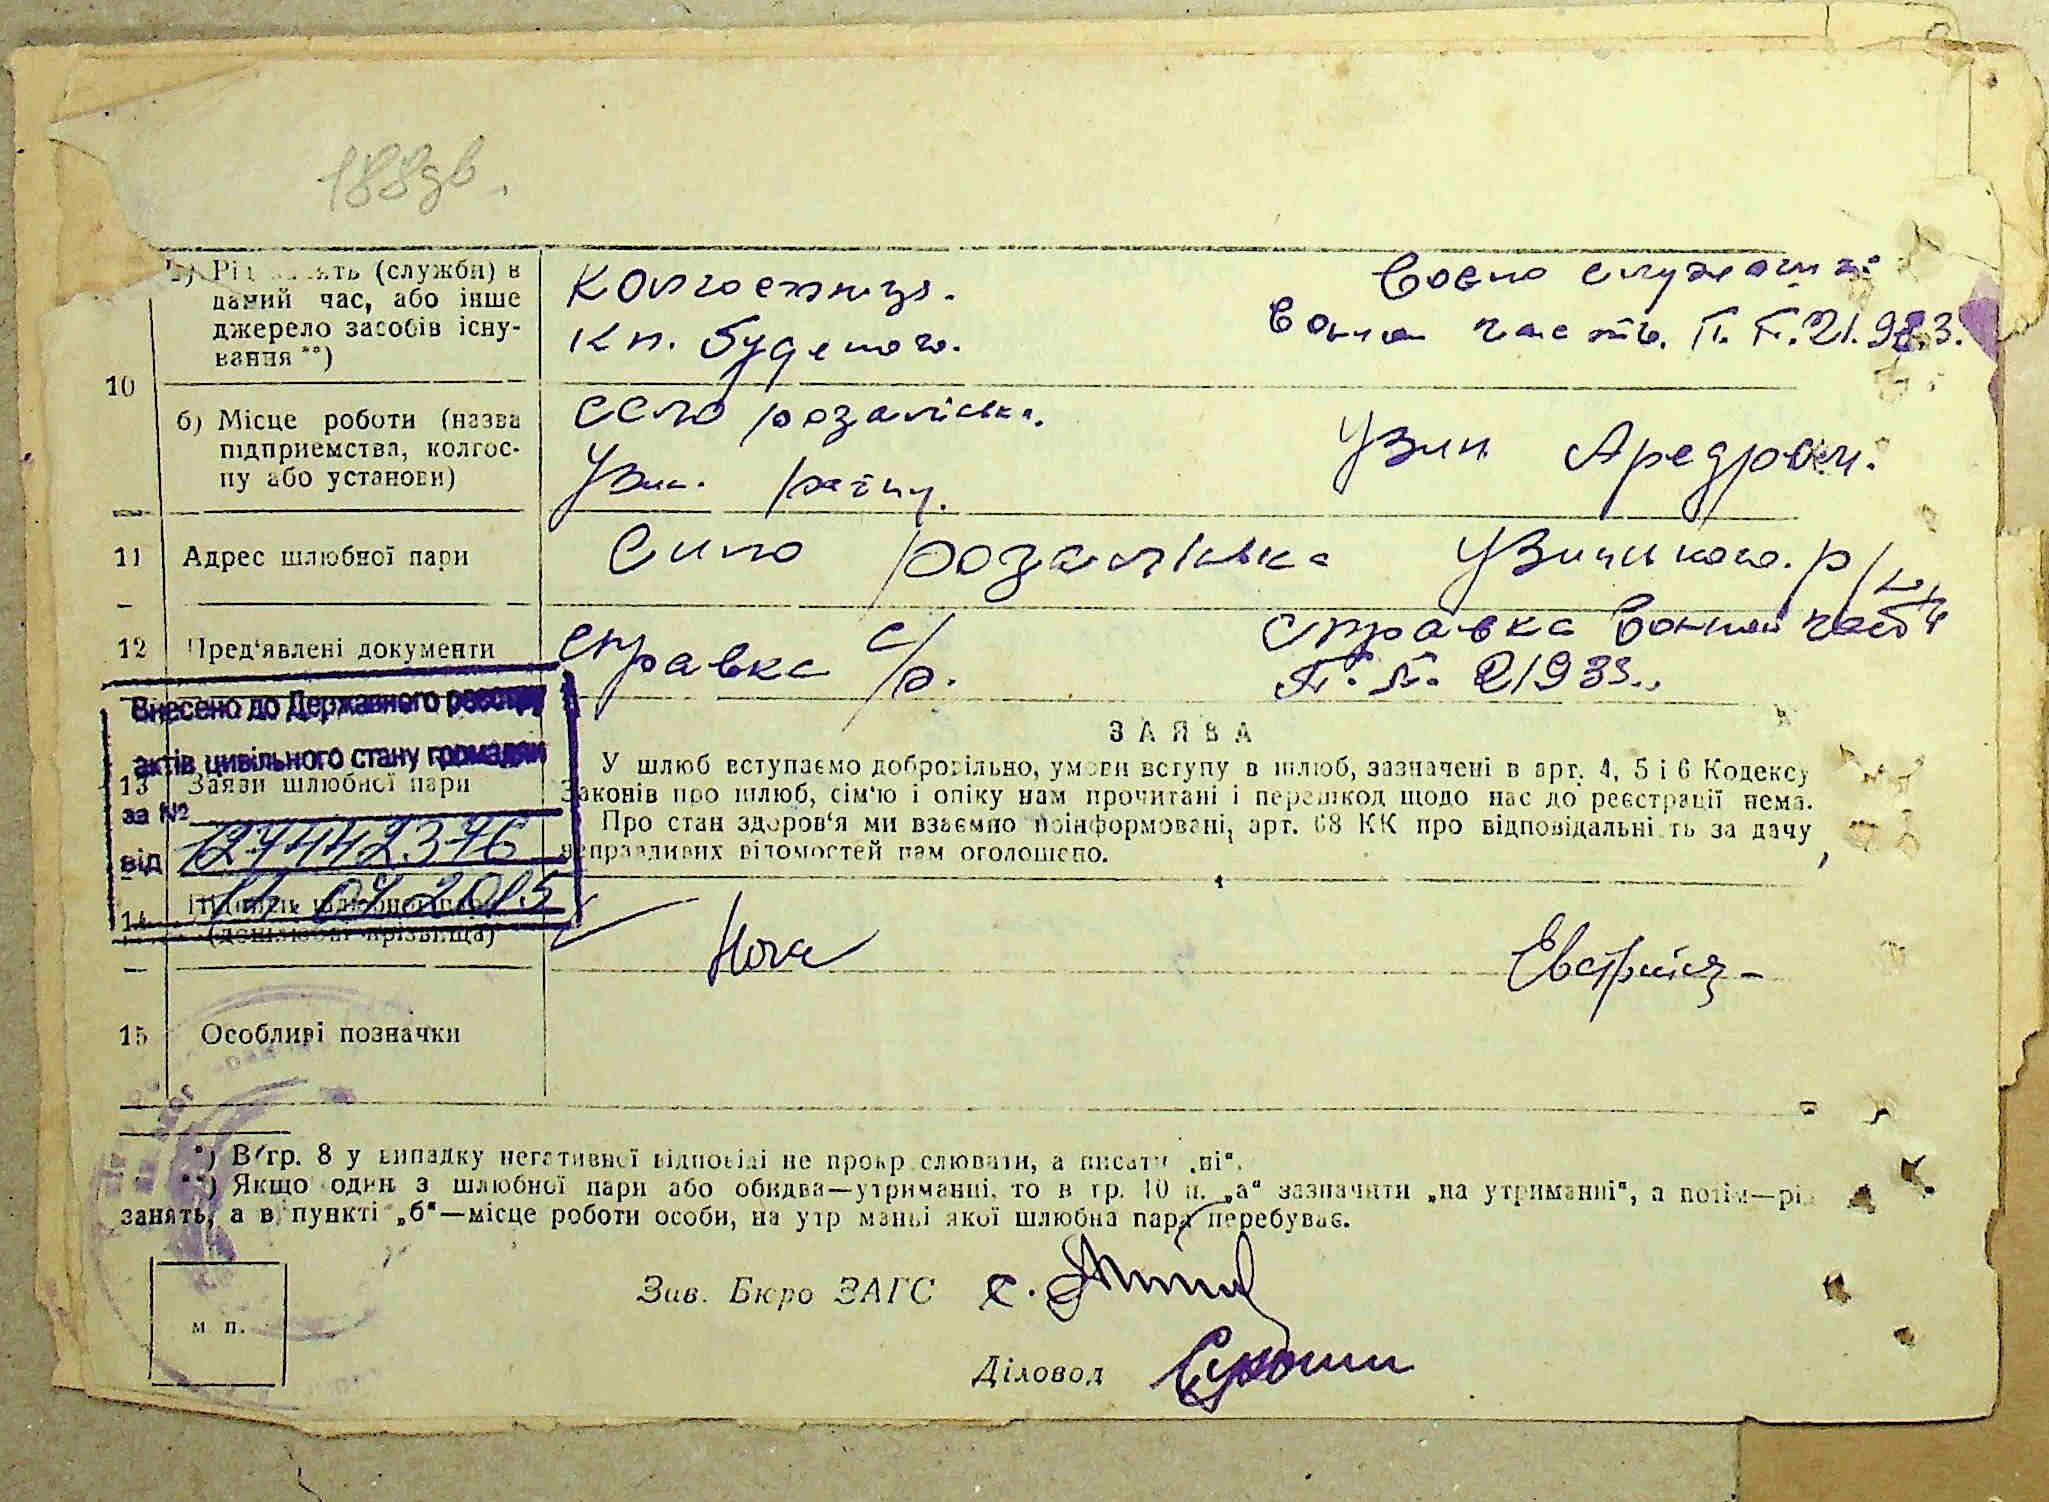 188зв.
10
а) Рід занять (служби) в
даний час, або інше
джерело засобів існу-
вання **)
Колгоспниця.
Кп. Буденого.
Военно служащий
Воинская часть. П. П. 21.983.
б) Місце роботи (назва
підприємства, колгос-
пу або установи)
село Розаліївка.
Узин.
Узин Аредром.
11 Адрес шлюбної пари
Село Розаліївка Узинського. р/
12 Пред'явлені документи
справка с/р.
справка воинской части
П. П. 21933..
Внесено до Державного реєстру
актів цивільного стану громадян
за №
127442376
від
11 07 2015
13 Заяви шлюбної пари
ЗАЯВА
У шлюб вступаємо добровільно, умови вступу в шлюб, зазначені в арт. 4, 5 і 6 Кодексу
Законів про шлюб, сім'ю і опіку нам прочитані і перешкод щодо нас до реєстрації нема.
Про стан здоров'я ми взаємно поінформовані, арт. 68 КК про відповідальність за дачу
неправдивих відомостей нам оголошено.
14 Підписи шлюбної пари
(дошлюбні прізвища)
15 Особливі позначки
*) В гр. 8 у випадку негативної відповіді не прокреслювати, а писати „ні".
**) Якщо один з шлюбної пари або обидва—утриманні, то в гр. 10 п. „а" зазначити „на утриманні", а потім—рід
занять, а в пункті „б"—місце роботи особи, на утриманні якої шлюбна пара перебуває.
Зав. Бюро ЗАГС
м. п.
Діловод